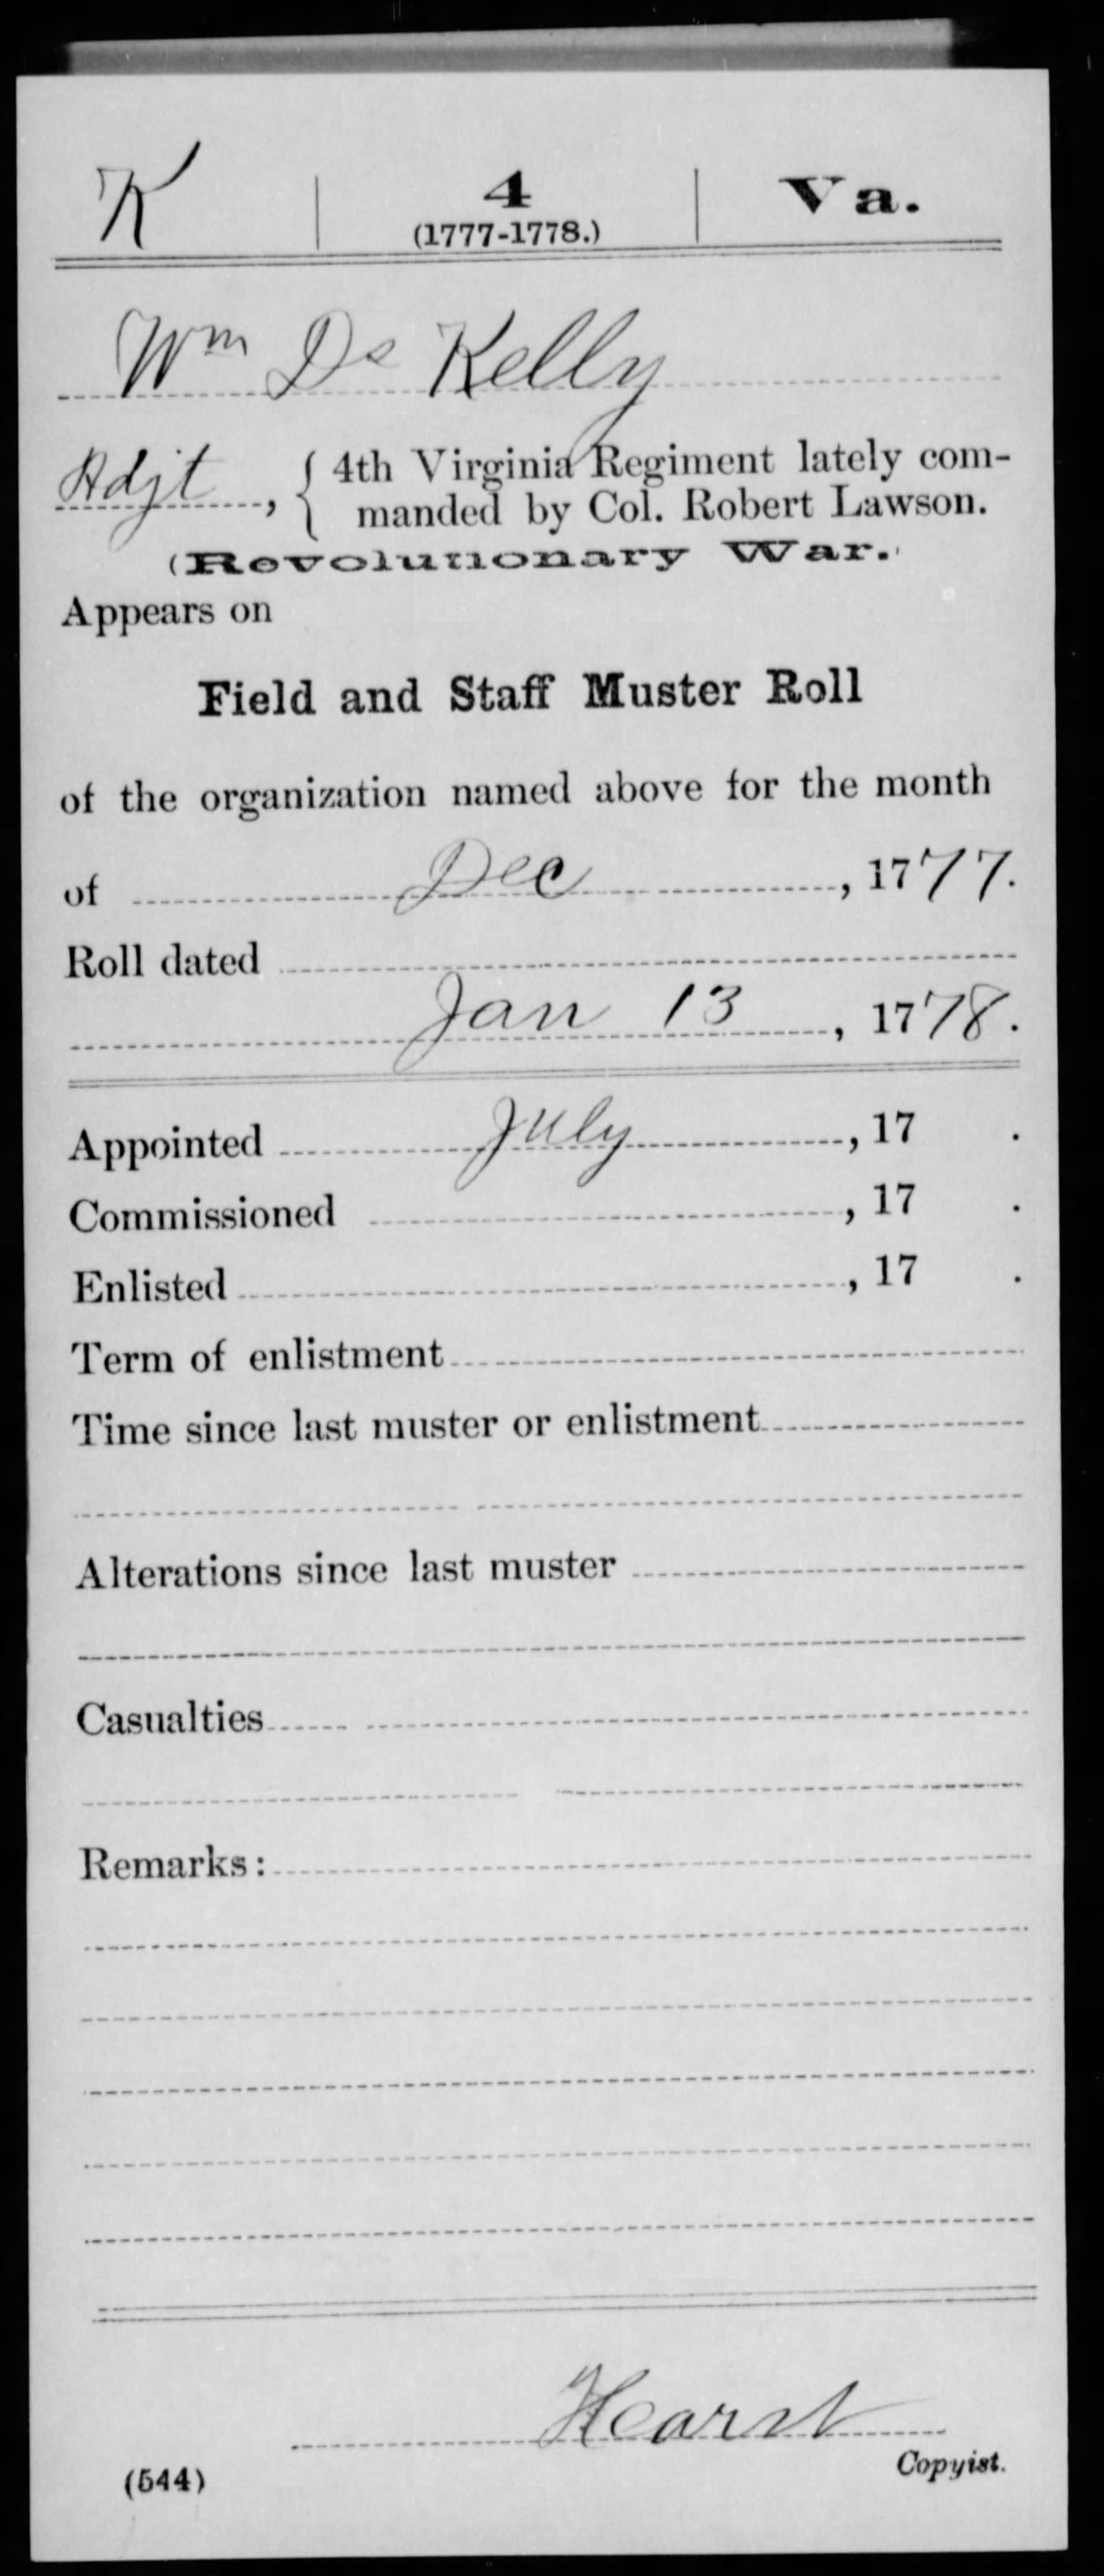 K | 4 | Va.
(1777-1778.)
Wm Ds Kelly
Adjt, { 4th Virginia Regiment lately com-
manded by Col. Robert Lawson.
(Revolutionary War.)
Appears on
Field and Staff Muster Roll
of the organization named above for the month
of Dec, 1777.
Roll dated
Jan 13, 1778.
Appointed July, 17 .
Commissioned , 17 .
Enlisted , 17 .
Term of enlistment
Time since last muster or enlistment
Alterations since last muster
Casualties
Remarks:
Hearst
Copyist.
(544)